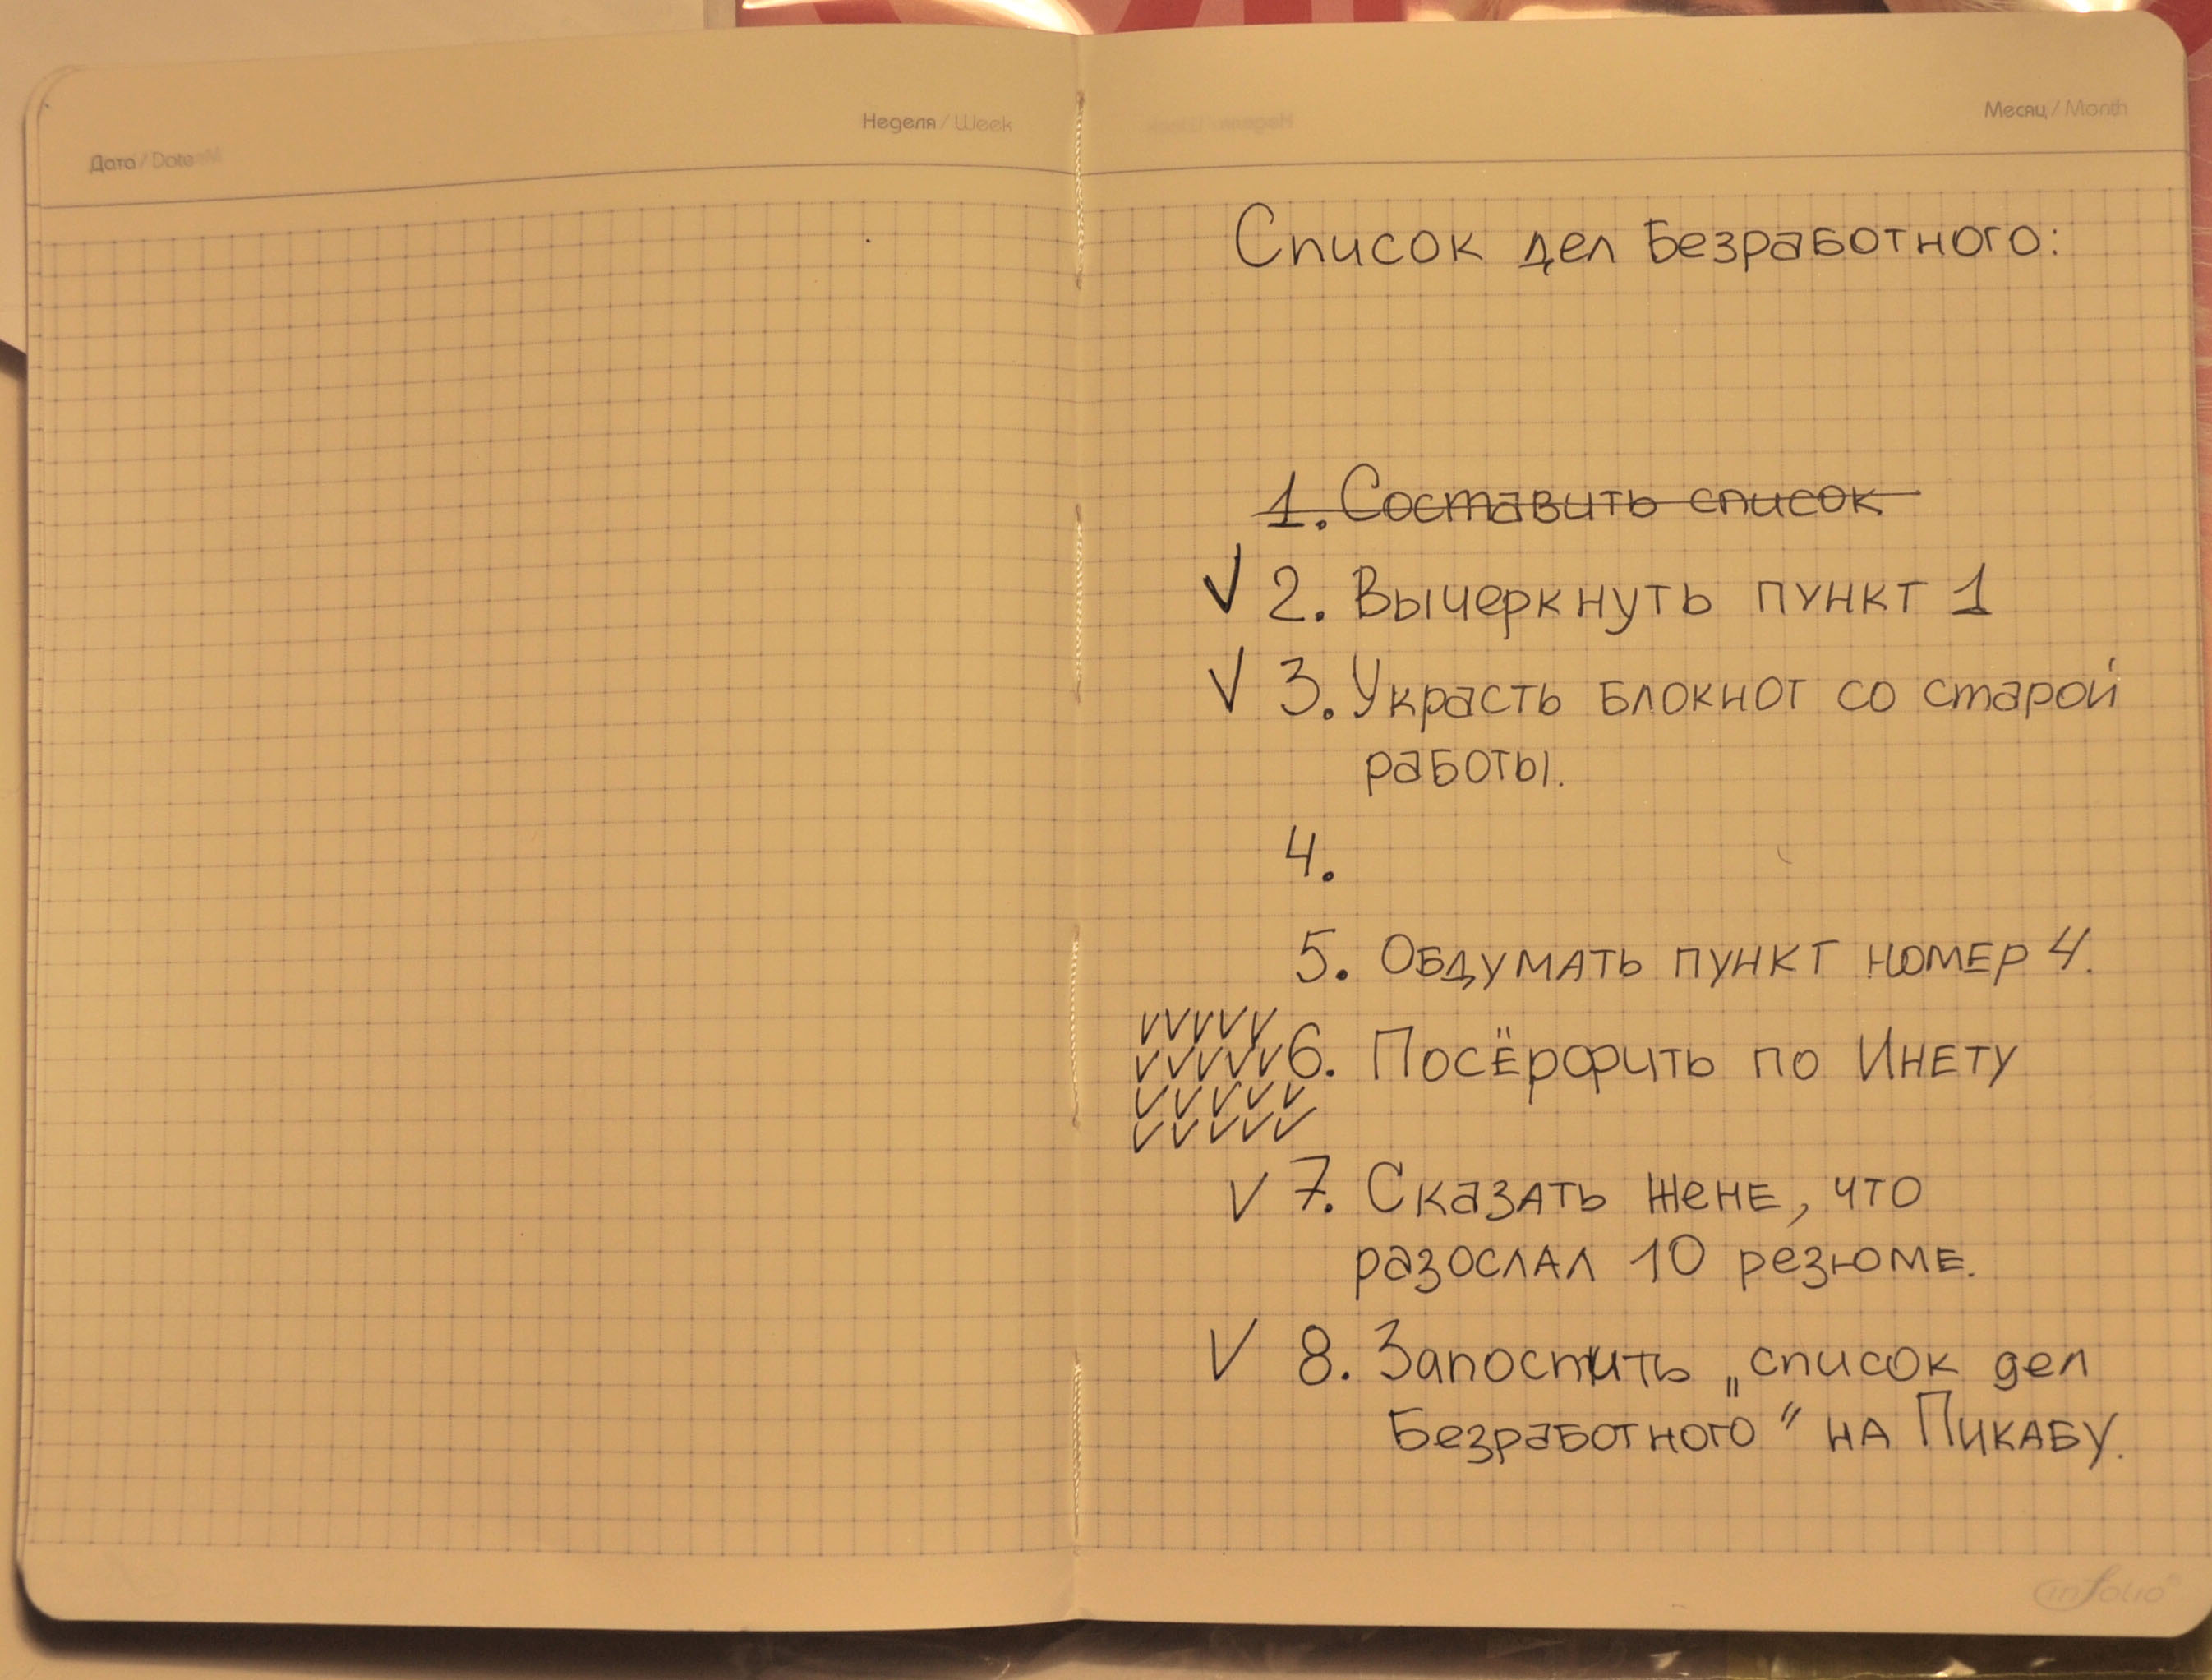 Неделя / Week
Дата / Date
Месяц / Month
Список дел Безработного:
1. Составить список
✓ 2. Вычеркнуть пункт 1
✓ 3. Украсть блокнот со старой
работы.
4.
5. Обдумать пункт номер 4.
✓✓✓✓✓
✓✓✓✓✓ 6. Посёрфить по Инету
✓✓✓✓✓
✓✓✓✓✓
✓ 7. Сказать жене, что
разослал 10 резюме.
✓ 8. Запостить „список дел
Безработного" на Пикабу.
infolio